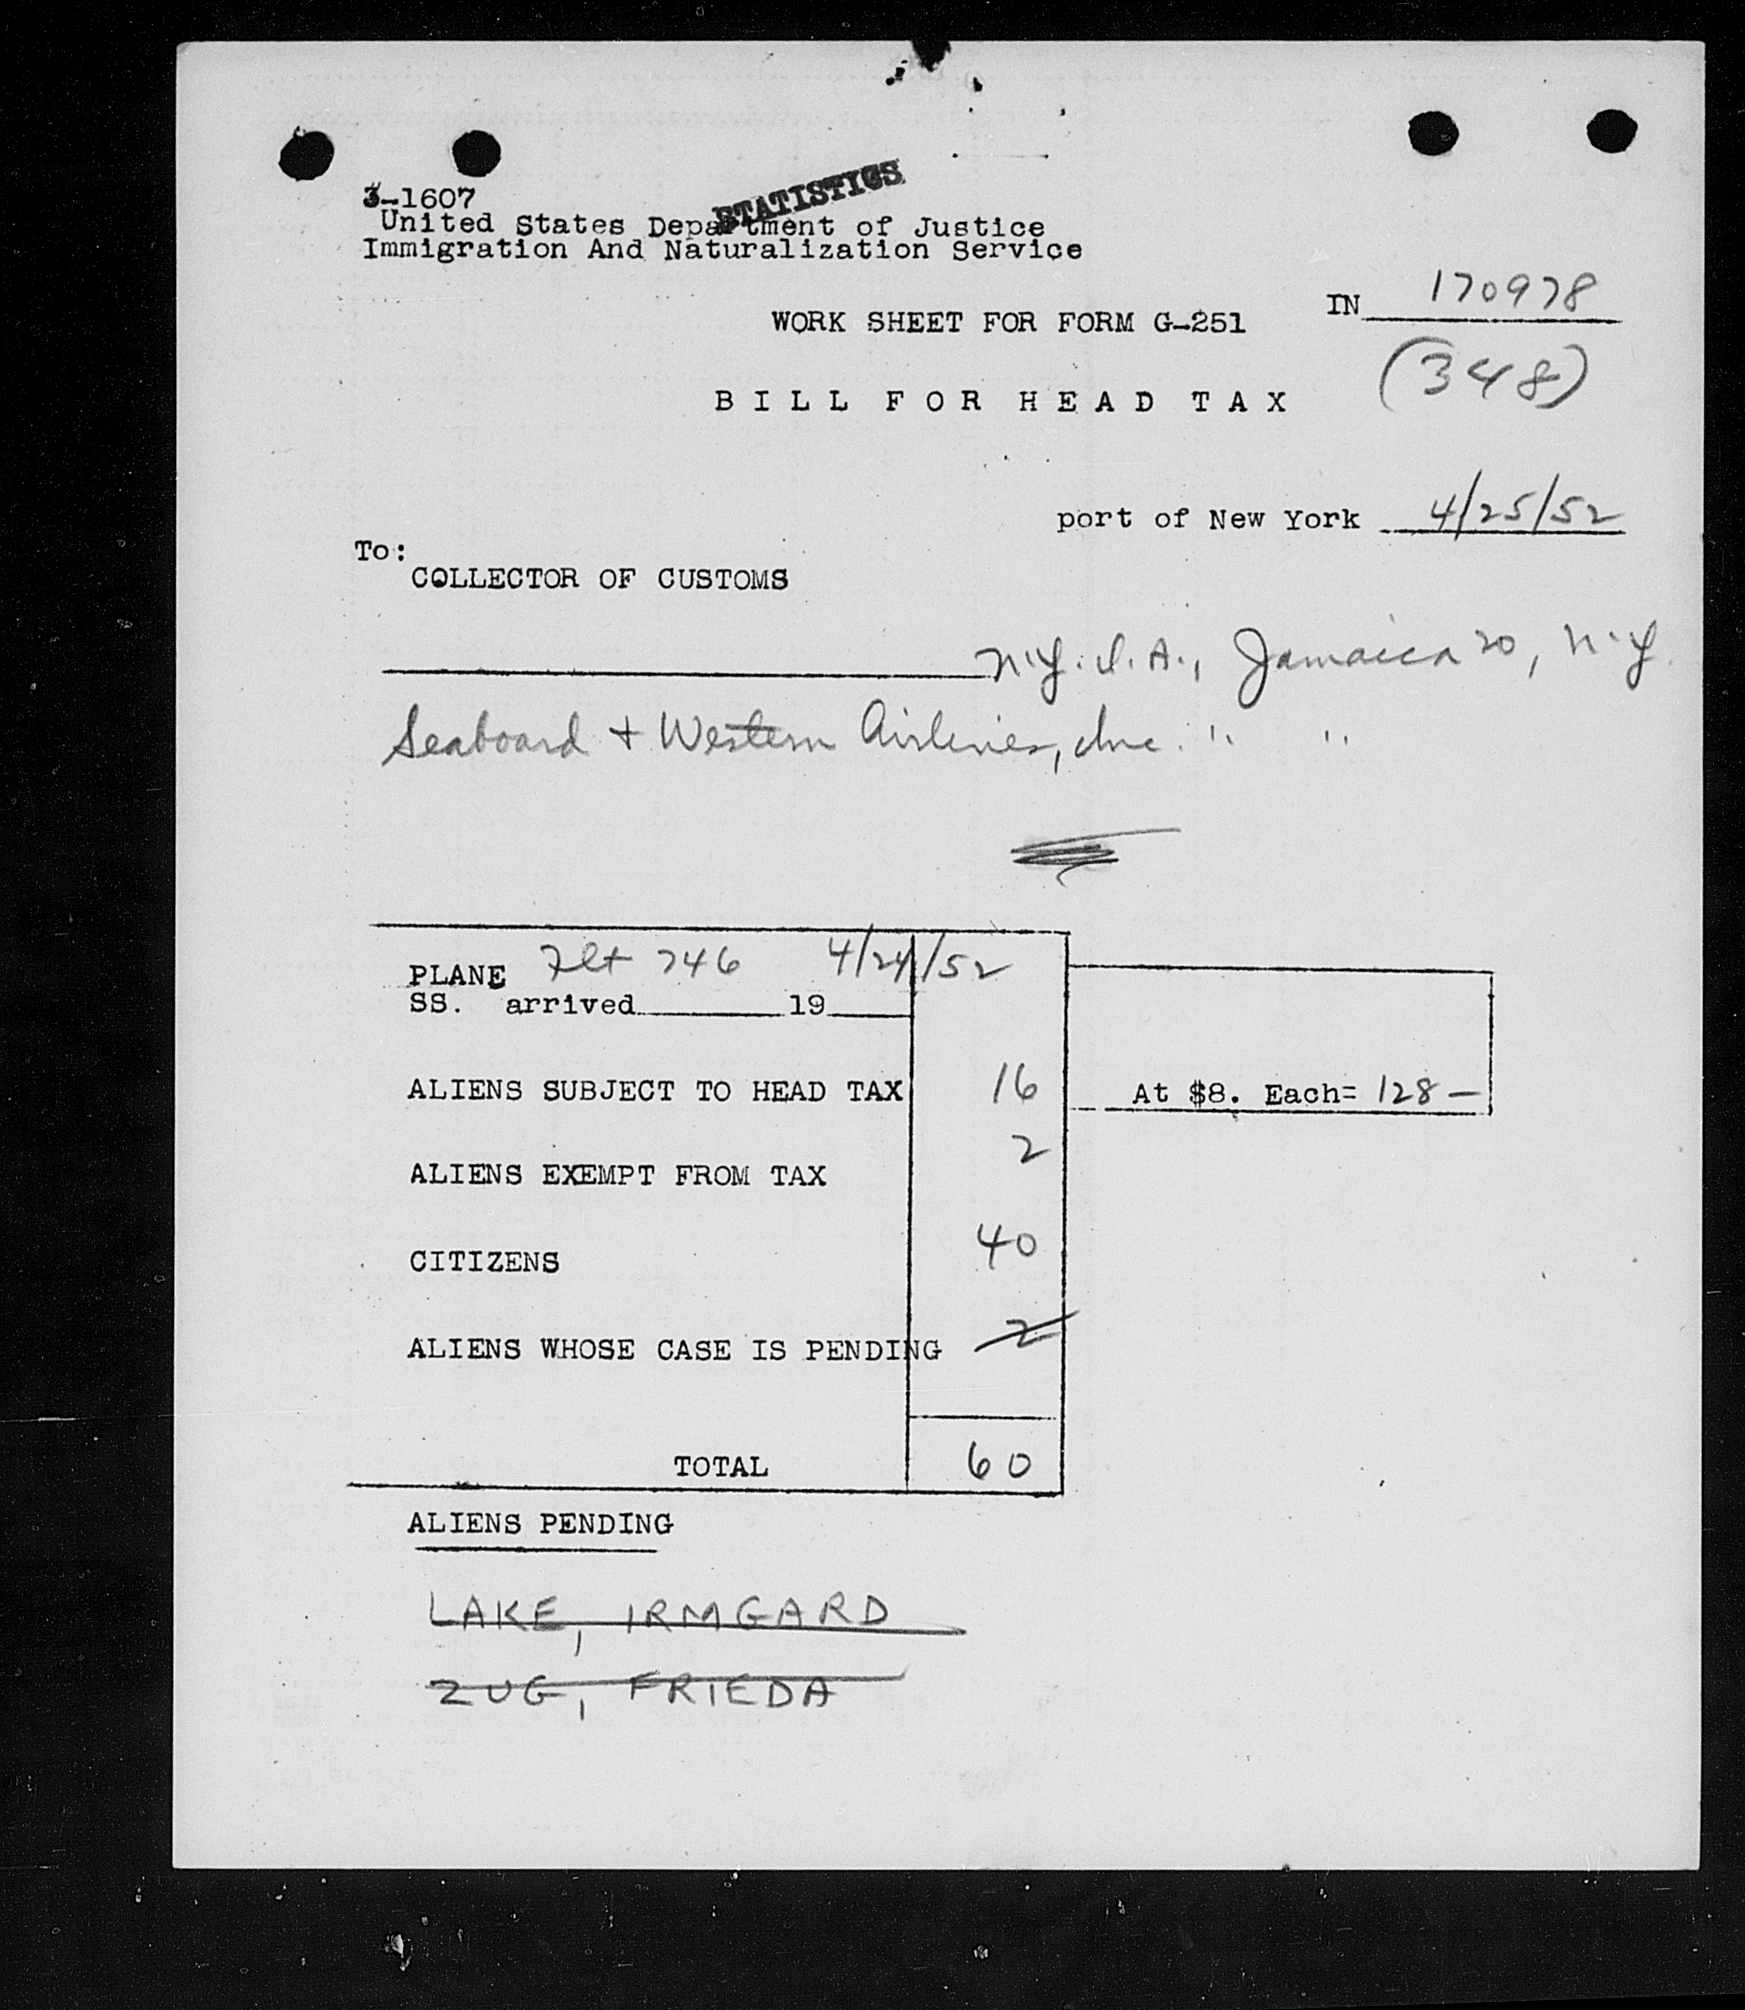 STATISTICS
3-1607
United States Department of Justice
Immigration And Naturalization Service
IN 170978
WORK SHEET FOR FORM G-251
(348)
BILL FOR HEAD TAX
port of New York 4/25/52
To:
COLLECTOR OF CUSTOMS
N.Y.I.A., Jamaica 20, N.Y.
Seaboard + Western Airlines, Inc. " "
PLANE Flt 746 4/24/52
SS. arrived 19
ALIENS SUBJECT TO HEAD TAX 16 At $8. Each= 128 —
ALIENS EXEMPT FROM TAX 2
CITIZENS 40
ALIENS WHOSE CASE IS PENDING 2
TOTAL 60
ALIENS PENDING
LAKE, IRMGARD
ZUG, FRIEDA